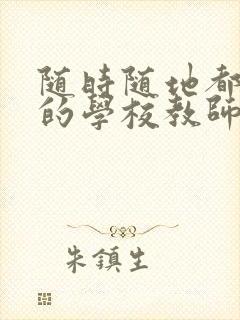 随時随地都
的學校教師
朱鎮生